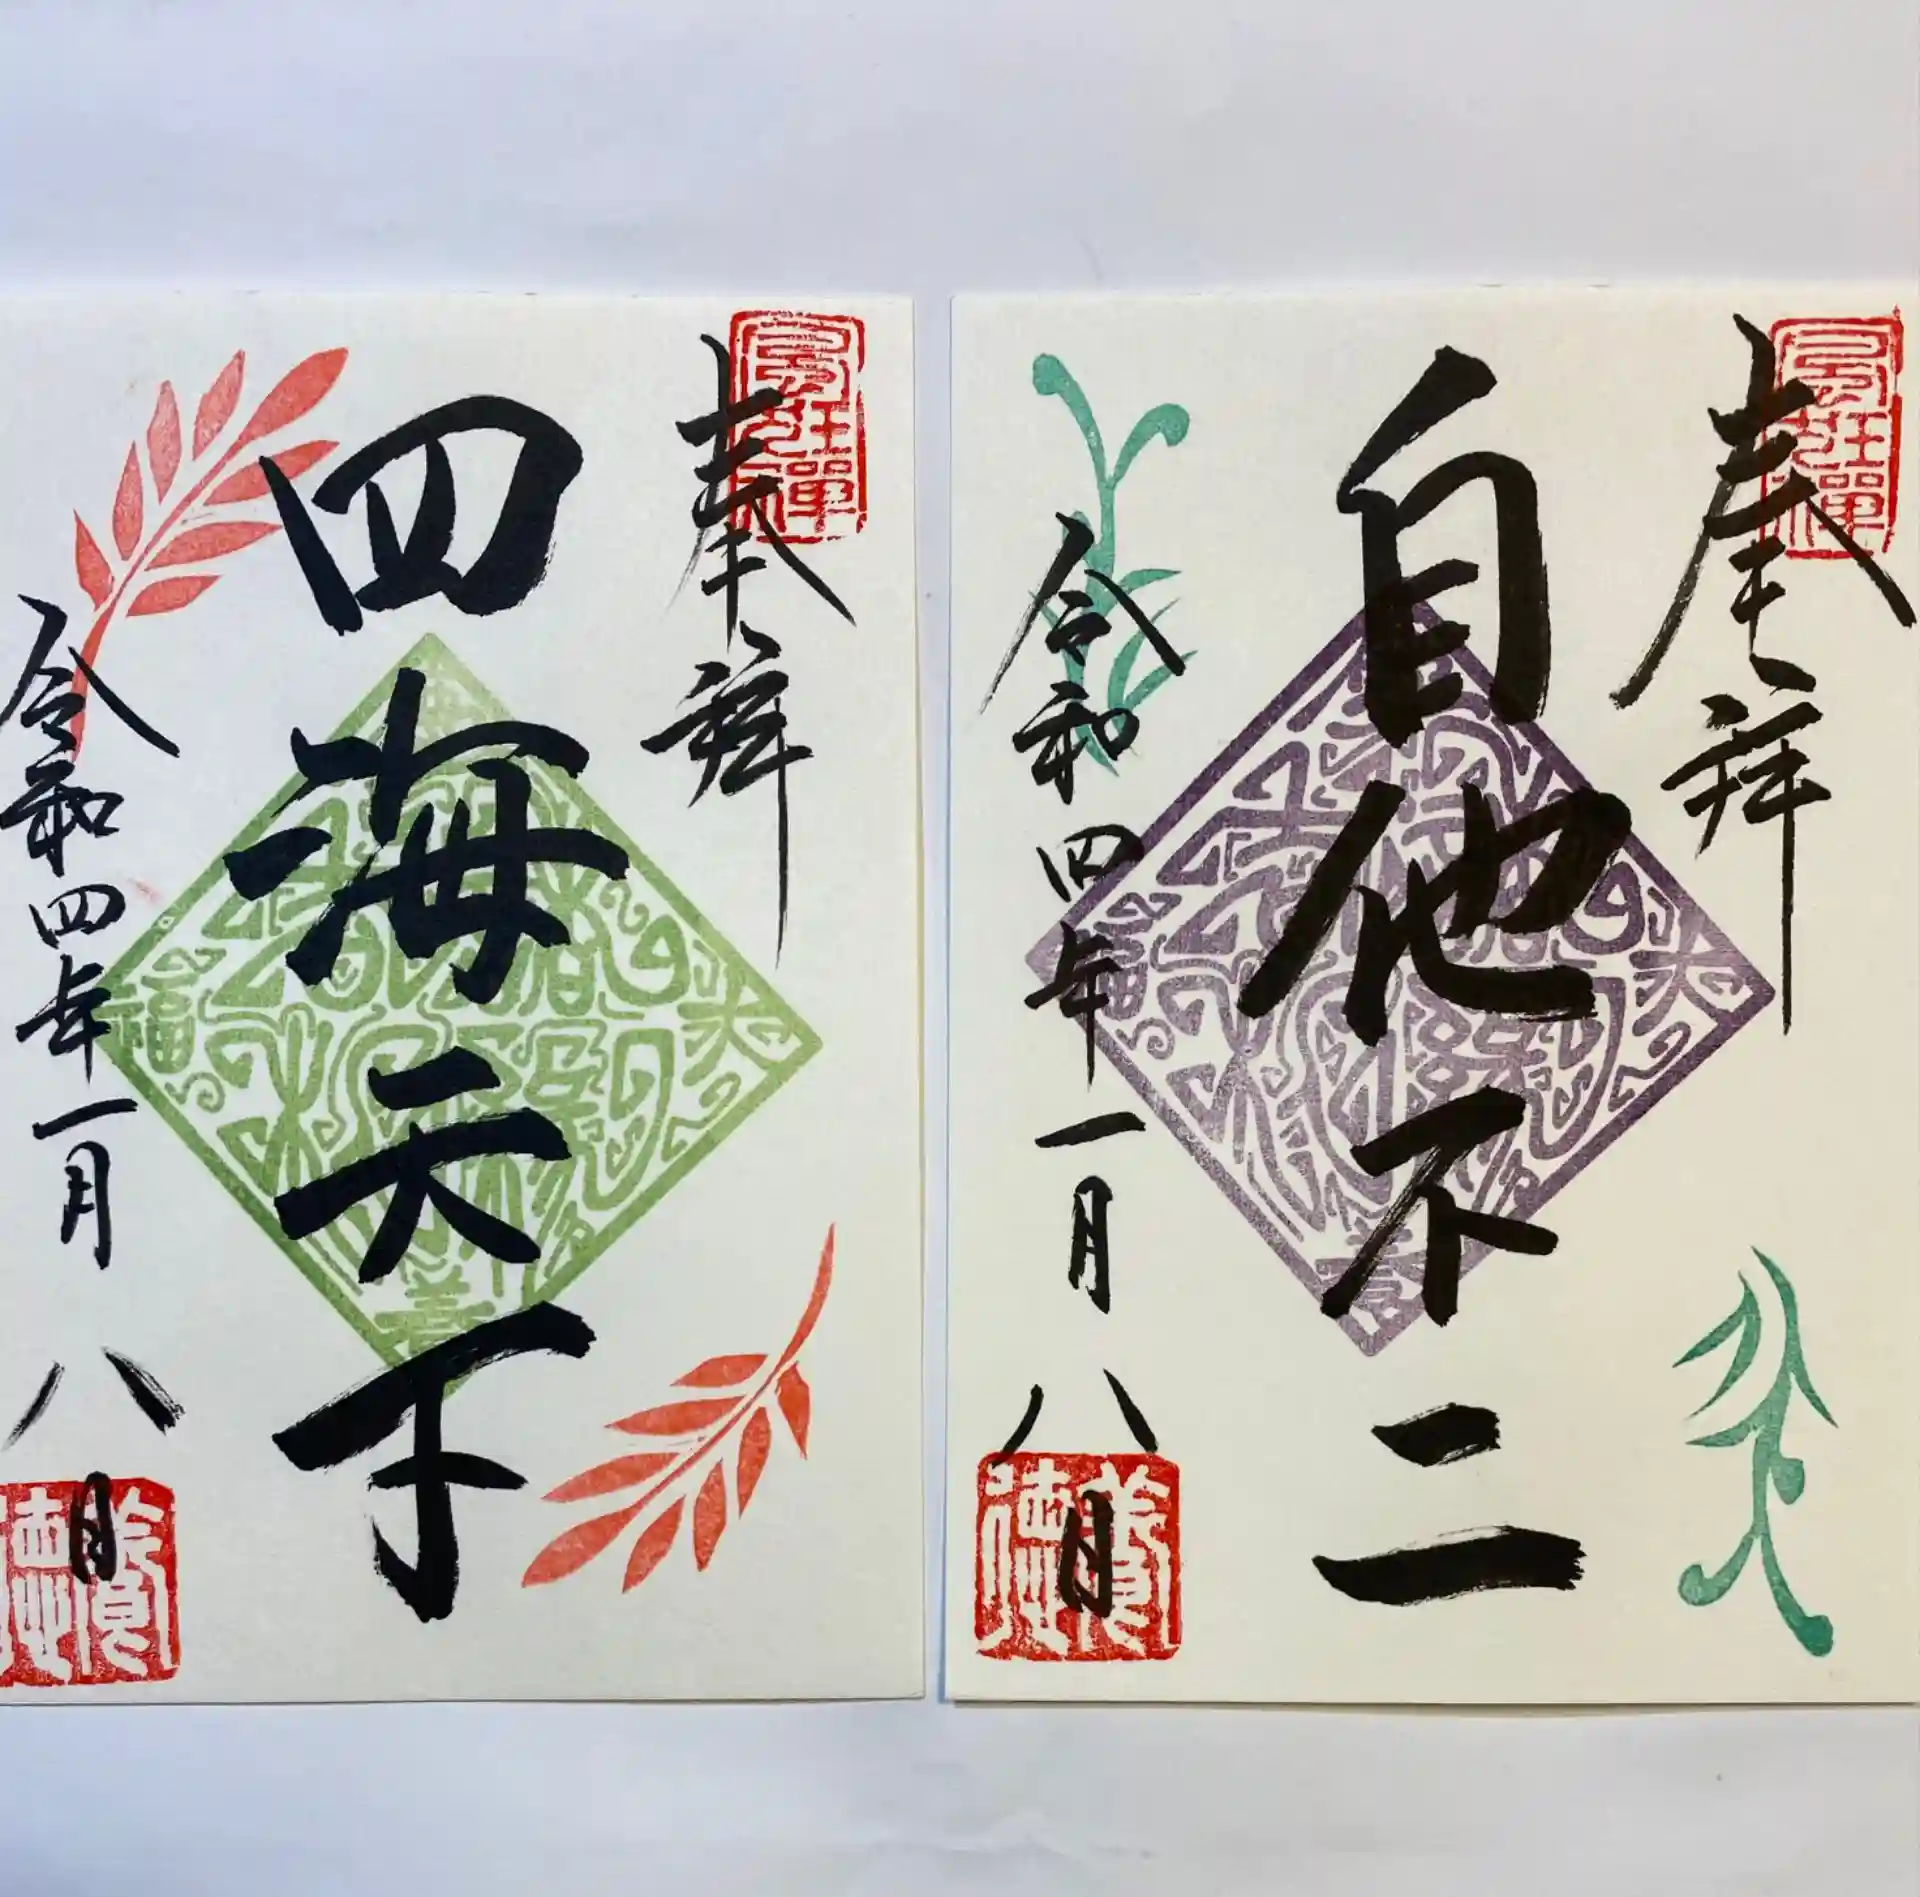 奉拝
自他不二
令和四年一月八日
奉拝
四海天下
令和四年一月八日